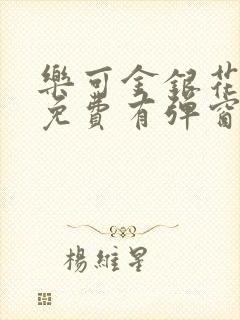 樂可金銀花
免費有彈窗
楊維星